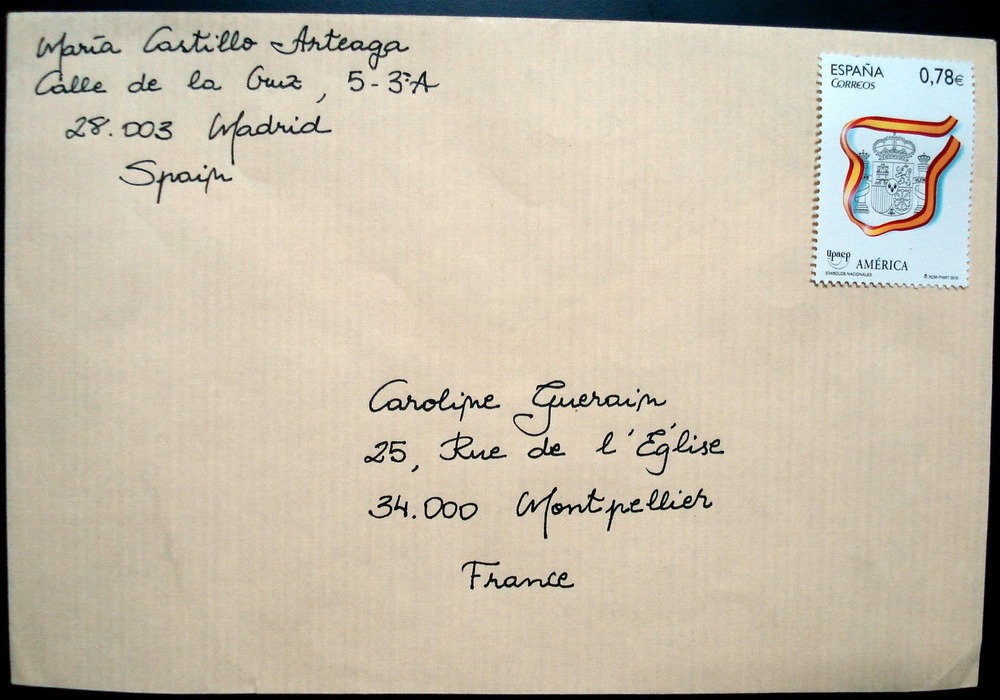 María Castillo Arteaga
Calle de la Cruz, 5-3ºA
28.003 Madrid
Spain
ESPAÑA 0,78€
CORREOS
Upaep AMÉRICA
SÍMBOLOS NACIONALES
Caroline Guerain
25, Rue de l'Église
34.000 Montpellier
France